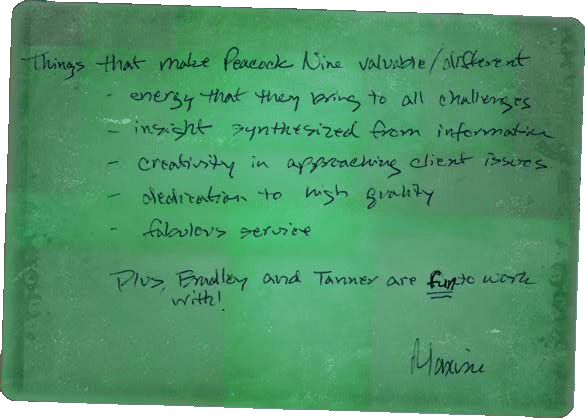 Things that make Peacock Nine valuable/different
- energy that they bring to all challenges
- insight synthesized from information
- creativity in approaching client issues
- dedication to high quality
- fabulous service
Plus, Bradley and Tanner are fun to work
with!
Maxine